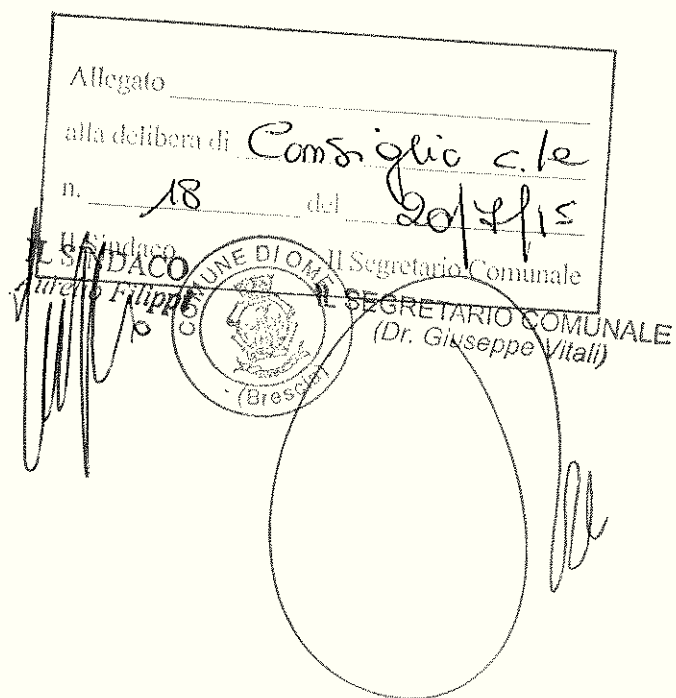 Allegato
alla delibera di Consiglio c.le
n. 18 del 20/7/15
Il Sindaco Il Segretario Comunale
IL SINDACO
Aurelio Filippi
COMUNE DI OME
- (Brescia)
IL SEGRETARIO COMUNALE
(Dr. Giuseppe Vitali)